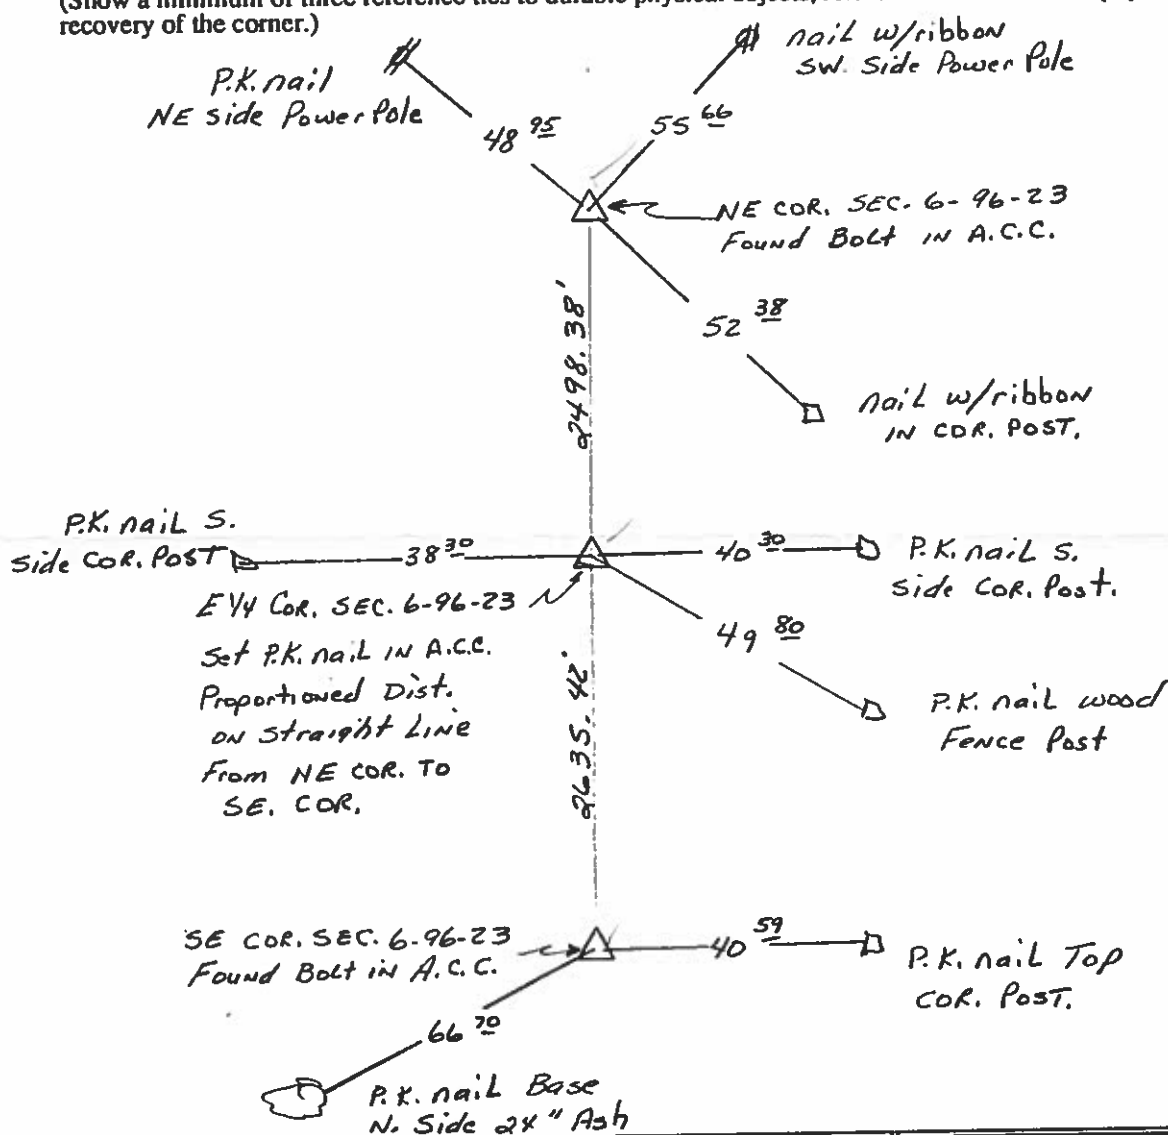 recovery of the corner.)
P.K. nail
NE side Power Pole
nail w/ribbon
SW. Side Power Pole
48 95
55 66
NE COR. SEC. 6-96-23
Found Bolt IN A.C.C.
2498.38'
52 38
nail w/ribbon
IN COR. POST.
P.K. nail S.
Side COR. POST
38 30
40 30
P.K. nail S.
Side Cor. Post.
E 1/4 COR. SEC. 6-96-23
Set P.K. nail IN A.C.C.
Proportioned Dist.
ON Straight Line
From NE COR. TO
SE. COR.
49 80
P.K. nail wood
Fence Post
2635.42'
SE COR. SEC. 6-96-23
Found Bolt in A.C.C.
40 59
P.K. nail Top
COR. POST.
66 70
P.K. nail Base
N. Side 24" Ash